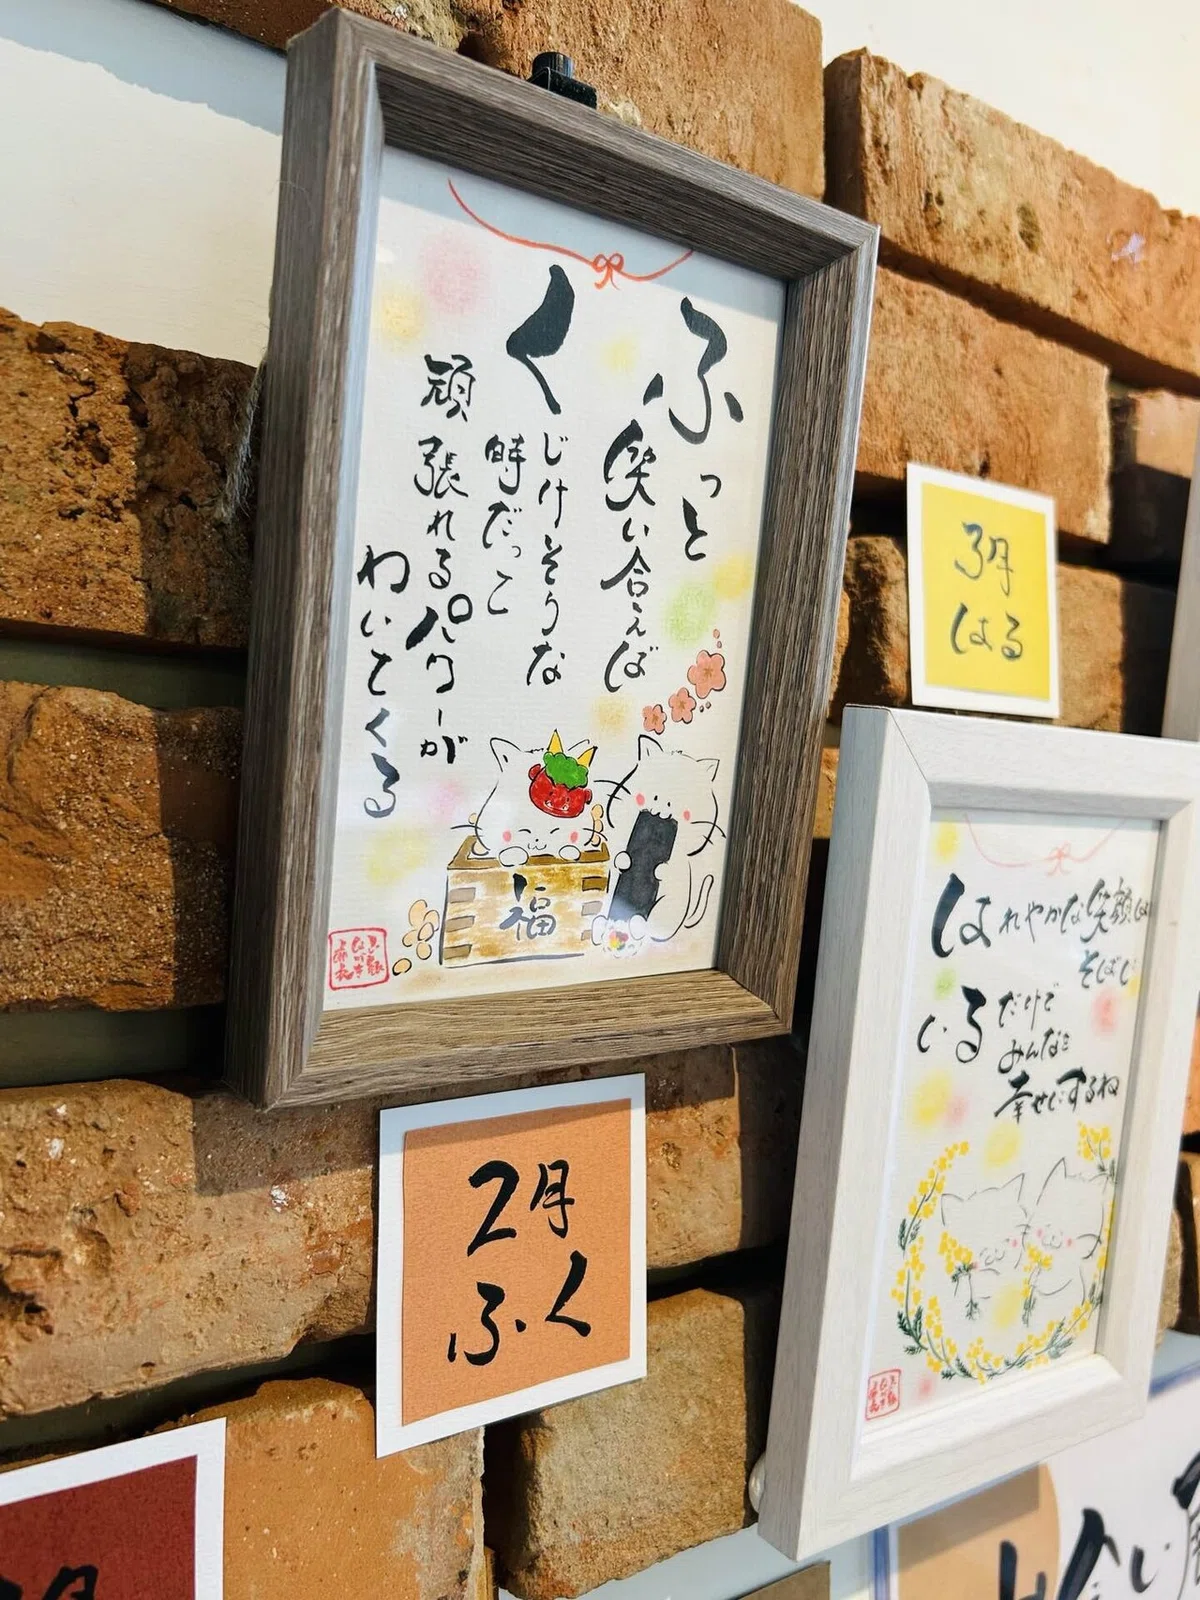 ふっと
笑い合えば
くじけそうな
時だって
頑張れるパワーが
わいてくる
福
2月
ふく
3月
はる
はれやかな笑顔が
そばに
いるだけで
みんなを
幸せにするね
月